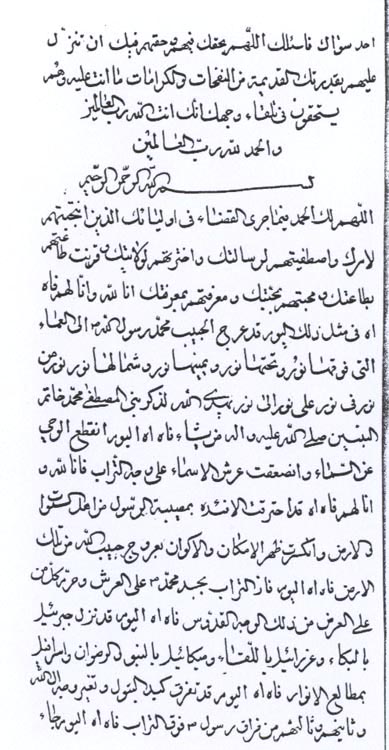 احد سواك فاسئلك اللهم بحقك فيهم وحقهم فيك ان تنزل
عليهم بقدرتك القديمة من النفحات والكرامات ما انت عليه وهم
يستحقون في تلقاء وجهك انك انت الله رب العالمين
والحمد لله رب العالمين
بسم الله الرحمن الرحيم
اللهم لك الحمد فيما جرى القضاء في اوليائك الذين انتجبتهم
لامرك واصطفيتهم لرسالتك واخترتهم لولايتك وقرنت طاعتهم
بطاعتك ومحبتهم بمحبتك ومعرفتهم بمعرفتك انا لله وانا لهم فاه
اه في مثل ذلك اليوم قد عرج الحبيب محمد رسول الله الى العماء
التي فوقها نور وتحتها نور ويمينها نور وشمالها نور نور من
نور في نور على نور الى نور يهدي الله لذكر نبي المصطفى محمد خاتم
النبيين صلى الله عليه واله من يشاء فاه اه اليوم انقطع الوحي
عن السماء وانصعقت عرش الاسماء على وجه التراب فانا لله و
انا لهم فاه اه قد احترقت الافئدة بمصيبة الرسول من اهل السموا
ت والارض وانكسرت ظهر الامكان والاكوان بعروج حبيب الله من تلك
الارض فاه اه اليوم فاز التراب بجسد محمد على العرش و
على العرش من ذلك الوجه القدوس فاه اه اليوم قد نزل جبرئيل
بالبكاء وعزرائيل باللقاء وميكائيل والرضوان واسرافيل
بمطالع الانوار فاه اه اليوم قد تفرق كبد البتول وتغير وجه الله
من فراق رسول فوق التراب فاه اه اليوم